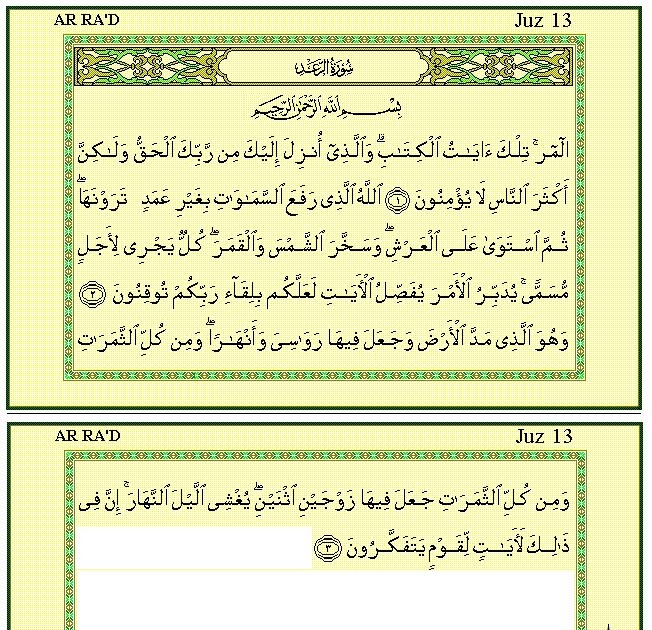 AR RA'D Juz 13
سُورَةُ الرَّعْدِ
بِسْمِ ٱللَّهِ ٱلرَّحْمَٰنِ ٱلرَّحِيمِ
الٓمٓر ۚ تِلْكَ ءَايَـٰتُ ٱلْكِتَـٰبِ ۗ وَٱلَّذِىٓ أُنزِلَ إِلَيْكَ مِن رَّبِّكَ ٱلْحَقُّ وَلَـٰكِنَّ
أَكْثَرَ ٱلنَّاسِ لَا يُؤْمِنُونَ ١ ٱللَّهُ ٱلَّذِى رَفَعَ ٱلسَّمَـٰوَٰتِ بِغَيْرِ عَمَدٍ تَرَوْنَهَا ۖ
ثُمَّ ٱسْتَوَىٰ عَلَى ٱلْعَرْشِ ۖ وَسَخَّرَ ٱلشَّمْسَ وَٱلْقَمَرَ ۖ كُلٌّ يَجْرِى لِأَجَلٍ
مُّسَمًّى ۚ يُدَبِّرُ ٱلْأَمْرَ يُفَصِّلُ ٱلْأَيَـٰتِ لَعَلَّكُم بِلِقَآءِ رَبِّكُمْ تُوقِنُونَ ٢
وَهُوَ ٱلَّذِى مَدَّ ٱلْأَرْضَ وَجَعَلَ فِيهَا رَوَٰسِىَ وَأَنْهَـٰرًا ۖ وَمِن كُلِّ ٱلثَّمَرَٰتِ
AR RA'D Juz 13
وَمِن كُلِّ ٱلثَّمَرَٰتِ جَعَلَ فِيهَا زَوْجَيْنِ ٱثْنَيْنِ ۖ يُغْشِى ٱلَّيْلَ ٱلنَّهَارَ ۚ إِنَّ فِى
ذَٰلِكَ لَأَيَـٰتٍ لِّقَوْمٍ يَتَفَكَّرُونَ ٣